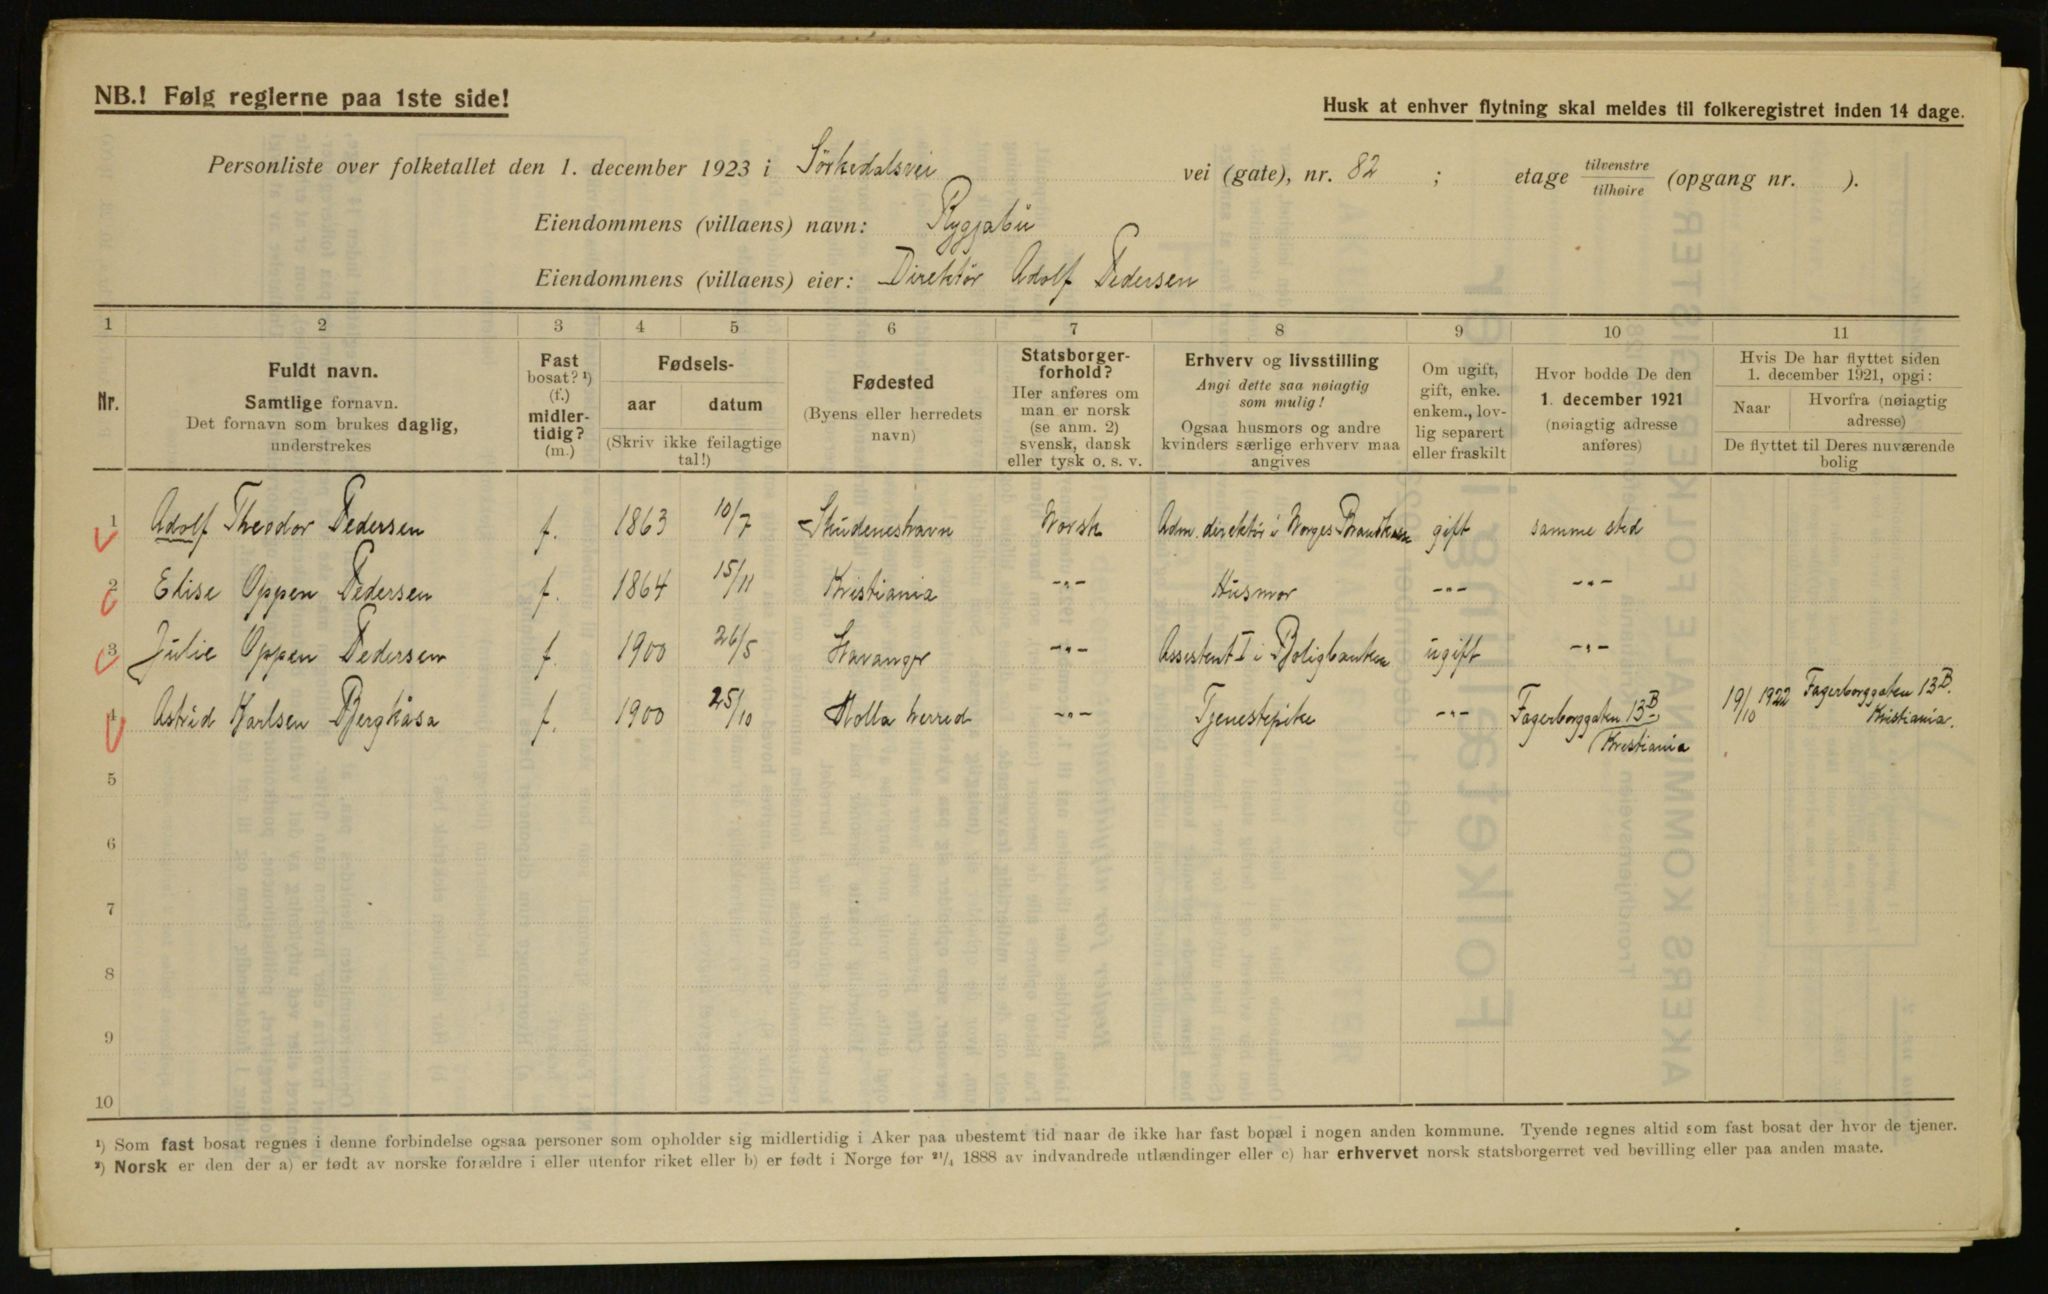 NB.! Følg reglerne paa 1ste side!
Husk at enhver flytning skal meldes til folkeregistret inden 14 dage.
Personliste over folketallet den 1. december 1923 i Sörkedalsvei vei (gate), nr. 82 ; etage tilvenstre / tilhøire (opgang nr. ).
Eiendommens (villaens) navn: Rygjabu
Eiendommens (villaens) eier: Direktör Adolf Pedersen
1 2 3 4 5 6 7 8 9 10 11
Nr.
Fuldt navn.
Samtlige fornavn.
Det fornavn som brukes daglig,
understrekes
Fast
bosat? ¹)
(f.)
midler-
tidig?
(m.)
Fødsels-
aar datum
(Skriv ikke feilagtige
tal!)
Fødested
(Byens eller herredets
navn)
Statsborger-
forhold?
Her anføres om
man er norsk
(se anm. 2)
svensk, dansk
eller tysk o. s. v.
Erhverv og livsstilling
Angi dette saa nøiagtig
som mulig!
Ogsaa husmors og andre
kvinders særlige erhverv maa
angives
Om ugift,
gift, enke.
enkem., lov-
lig separert
eller fraskilt
Hvor bodde De den
1. december 1921
(nøiagtig adresse
anføres)
Hvis De har flyttet siden
1. december 1921, opgi:
Naar Hvorfra (nøiagtig
adresse)
De flyttet til Deres nuværende
bolig
1 Adolf Theodor Pedersen f. 1863 10/7 Skudeneshavn Norsk Adm. direktör i Norges Brandkasse gift samme sted
2 Elise Oppen Pedersen f. 1864 15/11 Kristiania -"- Husmor -"- -"-
3 Julie Oppen Pedersen f. 1900 26/5 Stavanger -"- Assistent I i Boligbanken ugift -"-
4 Astrid Karlsen Bjergkåsa f. 1900 25/10 Holla herred -"- Tjenestepike -"- Fagerborggaten 13B, Kristiania 19/10 1922 Fagerborggaten 13B. Kristiania.
5
6
7
8
9
10
¹) Som fast bosat regnes i denne forbindelse ogsaa personer som opholder sig midlertidig i Aker paa ubestemt tid naar de ikke har fast bopæl i nogen anden kommune. Tyende regnes altid som fast bosat der hvor de tjener.
²) Norsk er den der a) er født av norske forældre i eller utenfor riket eller b) er født i Norge før ²¹/₄ 1888 av indvandrede utlændinger eller c) har erhvervet norsk statsborgerret ved bevilling eller paa anden maate.